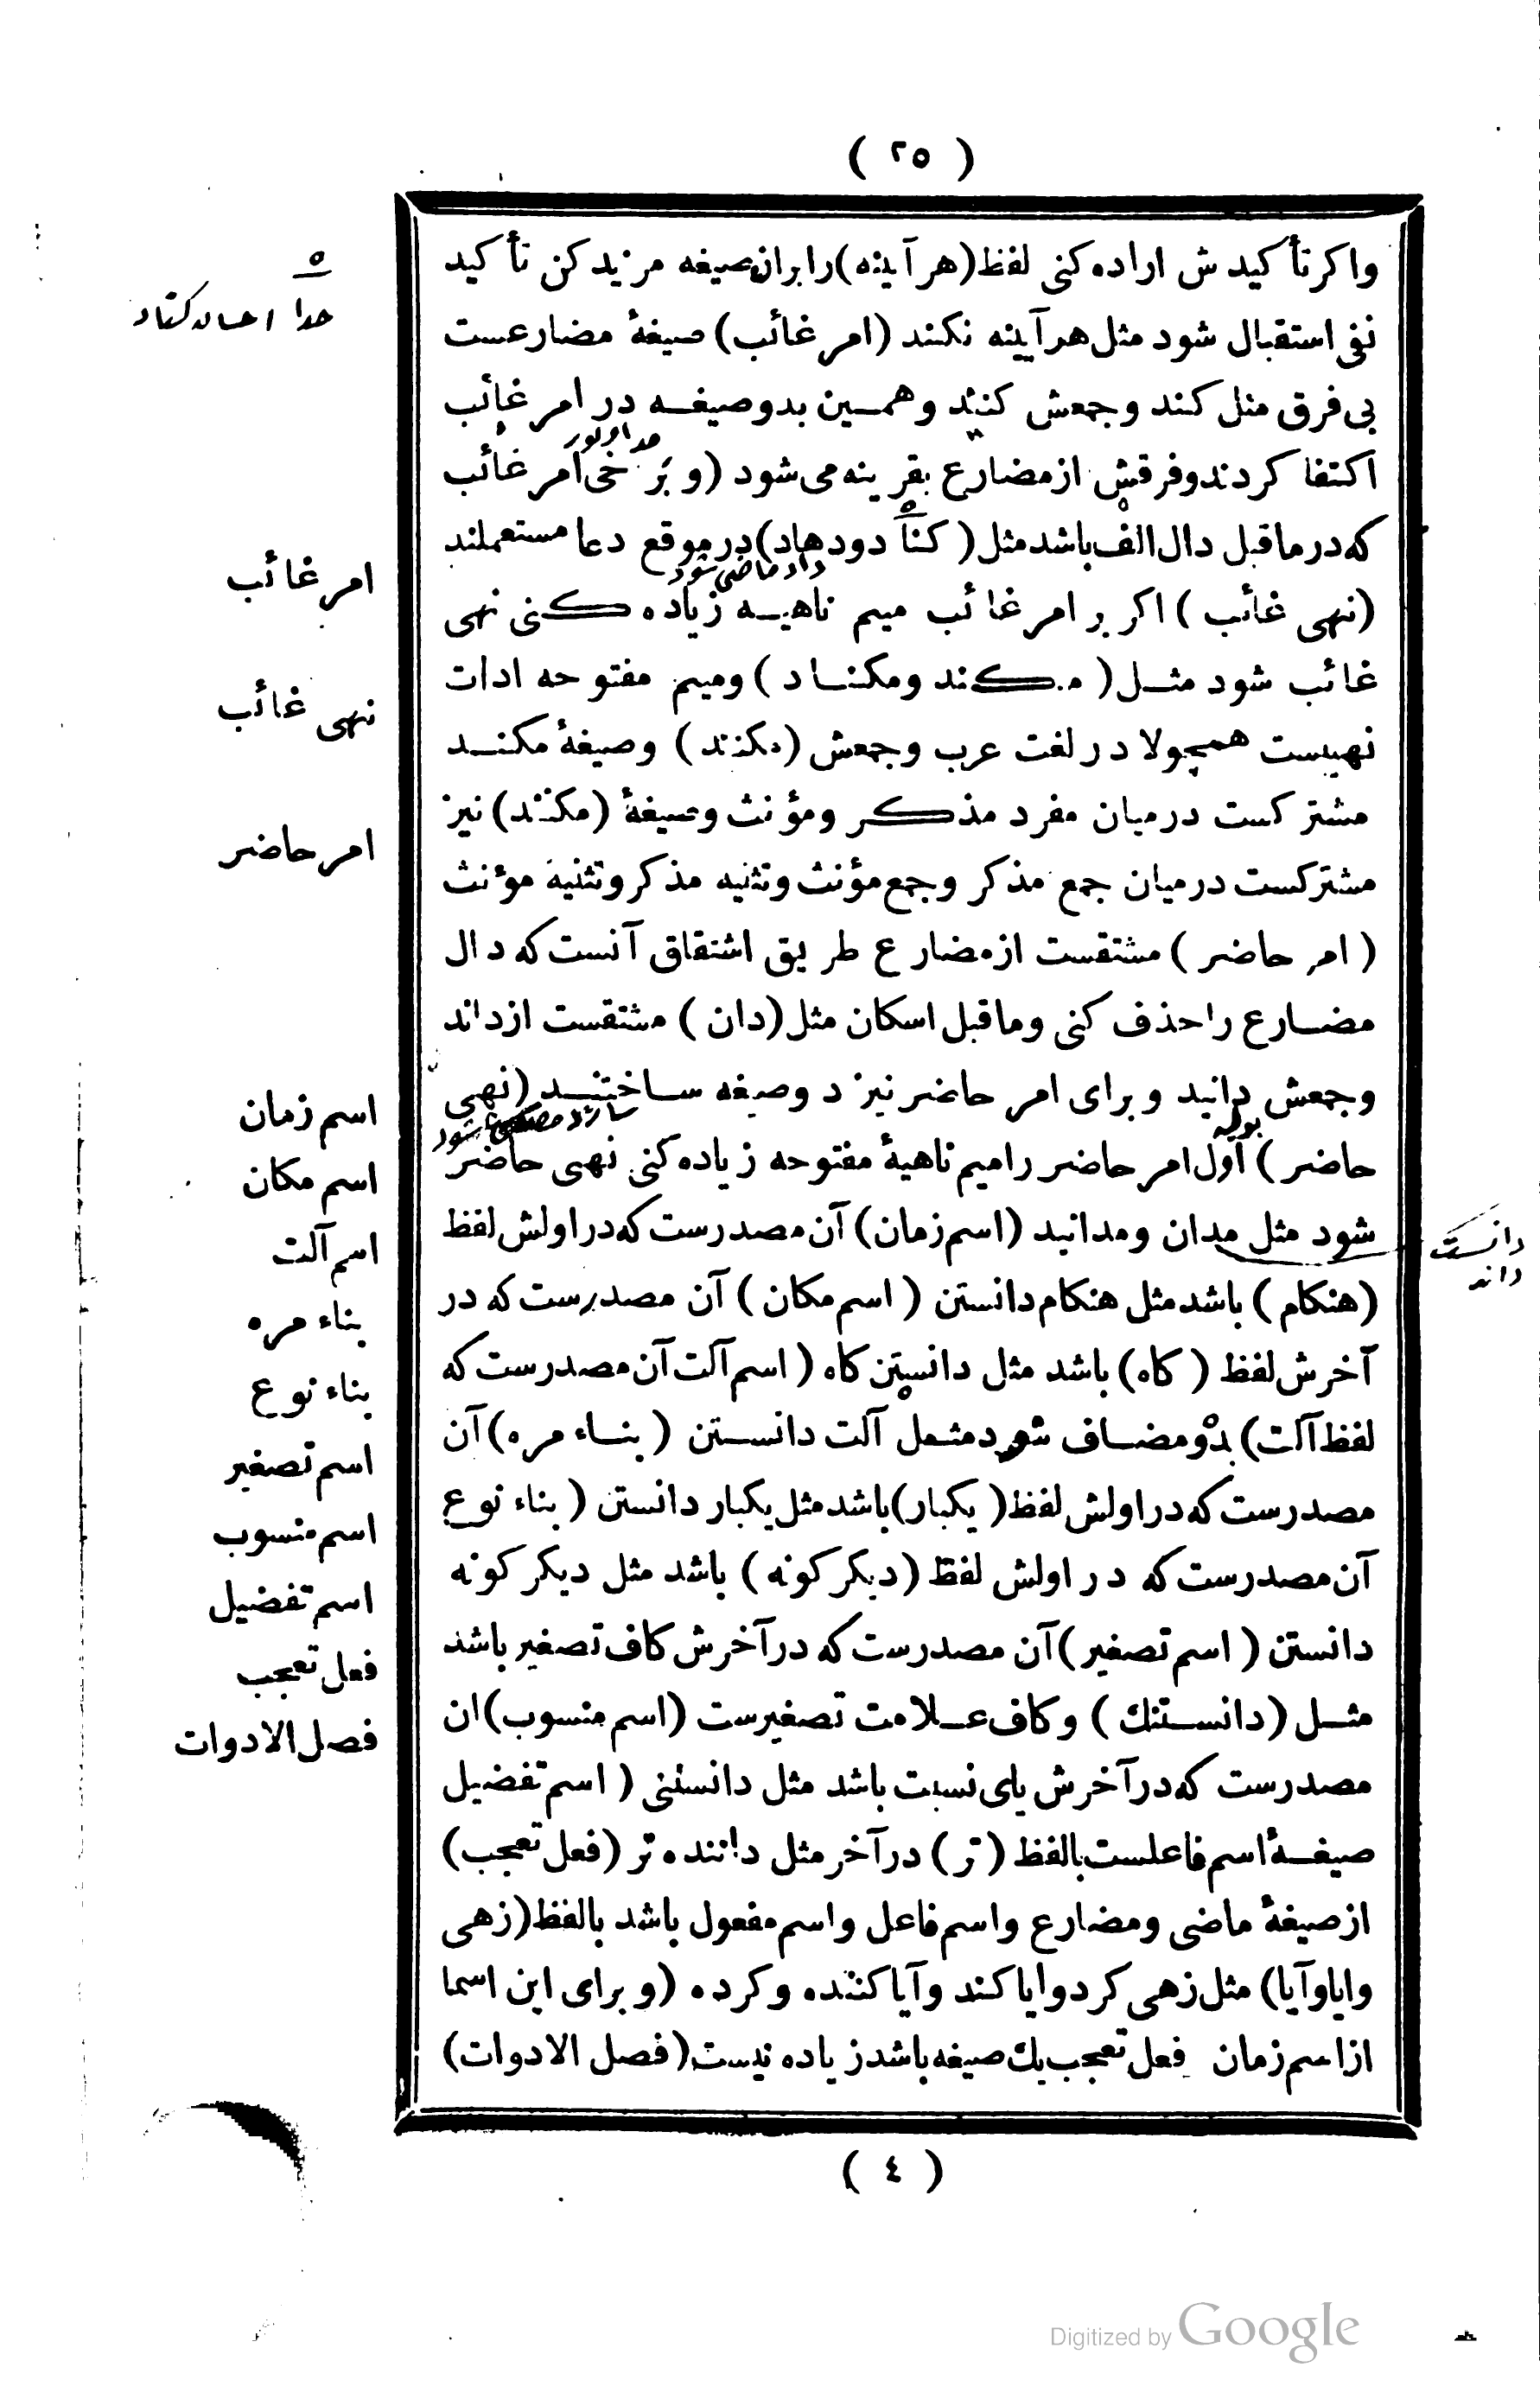 ( ٢٥ )
واكر تأكيدش اراده كنى لفظ (هر آينه) را بران صيغه مزيد كن تأكيد
نفى استقبال شود مثل هر آينه نكند (امر غائب) صيغهٔ مضارعست
بى فرق مثل كند وجمعش كنند وهمين بدوصيغه در امر غائب
اكتفا كردند وفرقش از مضارع بقرينه مى شود (و برخى امر غائب
كه در ماقبل دال الف باشد مثل (كناد ودهاد) در موقع دعا مستعملند
(نهى غائب) اكر بر امر غائب ميم ناهيه زياده كنى نهى
غائب شود مثل (مكند ومكناد) وميم مفتوحه ادات
نهيست همچو لا در لغت عرب وجمعش (مكنند) وصيغهٔ مكند
مشتركست درميان مفرد مذكر ومؤنث وصيغهٔ (مكنند) نيز
مشتركست درميان جمع مذكر وجمع مؤنث وتثنيه مذكر وتثنيه مؤنث
(امر حاضر) مشتقست از مضارع طريق اشتقاق آنست كه دال
مضارع را حذف كنى وماقبل اسكان مثل (دان) مشتقست از داند
وجمعش دانيد وبراى امر حاضر نيز دوصيغه ساختند (نهى
حاضر) اول امر حاضر را ميم ناهيهٔ مفتوحه زياده كنى نهى حاضر
شود مثل مدان ومدانيد (اسم زمان) آن مصدرست كه در اولش لفظ
(هنكام) باشد مثل هنكام دانستن (اسم مكان) آن مصدرست كه در
آخرش لفظ (كاه) باشد مثل دانستن كاه (اسم آلت آن مصدرست كه
لفظ آلت) بدو مضاف شود مثل آلت دانستن (بناء مره) آن
مصدرست كه در اولش لفظ (يكبار) باشد مثل يكبار دانستن (بناء نوع
آن مصدرست كه در اولش لفظ (ديكر كونه) باشد مثل ديكر كونه
دانستن (اسم تصغير) آن مصدرست كه در آخرش كاف تصغير باشد
مثل (دانستنك) وكاف علامت تصغيرست (اسم منسوب) ان
مصدرست كه در آخرش ياى نسبت باشد مثل دانستنى (اسم تفضيل
صيغهٔ اسم فاعلست بالفظ (تر) در آخر مثل داننده تر (فعل تعجب)
از صيغهٔ ماضى ومضارع واسم فاعل واسم مفعول باشد بالفظ (زهى
وايا وآيا) مثل زهى كرد وايا كند وآيا كننده وكرده (وبراى اين اسما
از اسم زمان فعل تعجب يك صيغه باشد زياده نيست (فصل الادوات)
( ٤ )
امر غائب
نهى غائب
امر حاضر
اسم زمان
اسم مكان
اسم آلت
بناء مره
بناء نوع
اسم تصغير
اسم منسوب
اسم تفضيل
فعل تعجب
فصل الادوات
دانست
داند
Digitized by Google